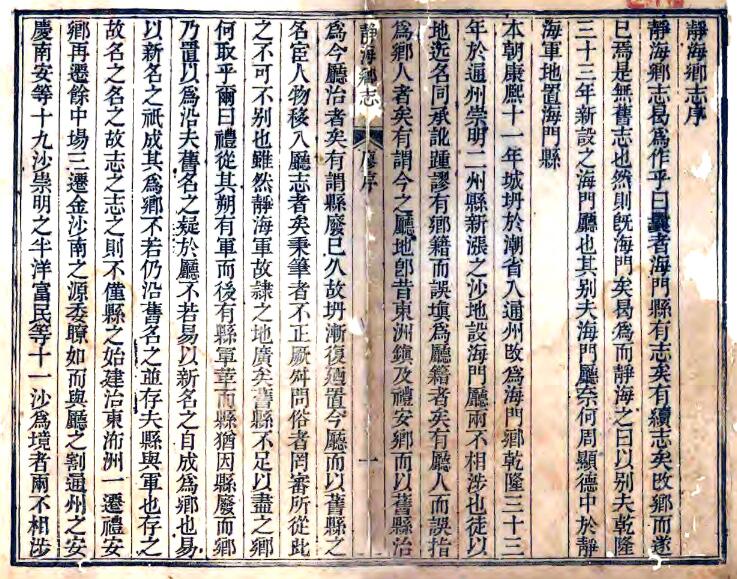 靜海鄉志序
靜海鄉志曷爲作乎曰曩者海門縣有志矣有續志矣改鄉而遂
已焉是無舊志也然則旣海門矣曷爲而靜海之曰以別夫乾隆
三十三年新設之海門廳也其別夫海門廳奈何周顯德中於靜
海軍地置海門縣
本朝康熙十一年城坍於潮省入通州改爲海門鄉乾隆三十三
年於通州崇明二州縣新漲之沙地設海門廳兩不相涉也徒以
地迩名同承訛踵謬有鄉籍而誤填爲廳籍者矣有廳人而誤指
爲鄉人者矣有謂今之廳地卽昔東洲鎭及禮安鄉而以舊縣治
靜海鄉志
序
一
爲今廳治者矣有謂縣廢已久故坍漸復廼置今廳而以舊縣之
名宦人物移入廳志者矣秉筆者不正厥舛問俗者罔審所從此
之不可不別也雖然靜海軍故隷之地廣矣舊縣不足以盡之鄉
何取乎爾曰禮從其朔有軍而後有縣軍葦而縣猶因縣廢而鄉
乃置以爲沿夫舊名之疑於廳不若易以新名之自成爲鄉也易
以新名之祇成其爲鄉不若仍沿舊名之並存夫縣與軍也存之
故名之名之故志之志之則不僅縣之始建治東洲一遷禮安
鄉再遷餘中場三遷金沙南之源委瞭如而與廳之割通州之安
慶南安等十九沙崇明之半洋富民等十一沙爲境者兩不相涉